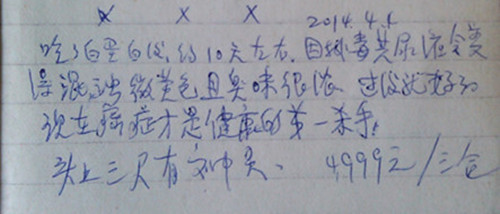 × × × 2014.4.1
吃了白蛋白后,约10天左右,因排毒其尿液会变
得混浊微黄色且臭味很浓 过后就好了
现在癌症才是健康的第一杀手。
头上三尺有神灵、 4999元/三盒